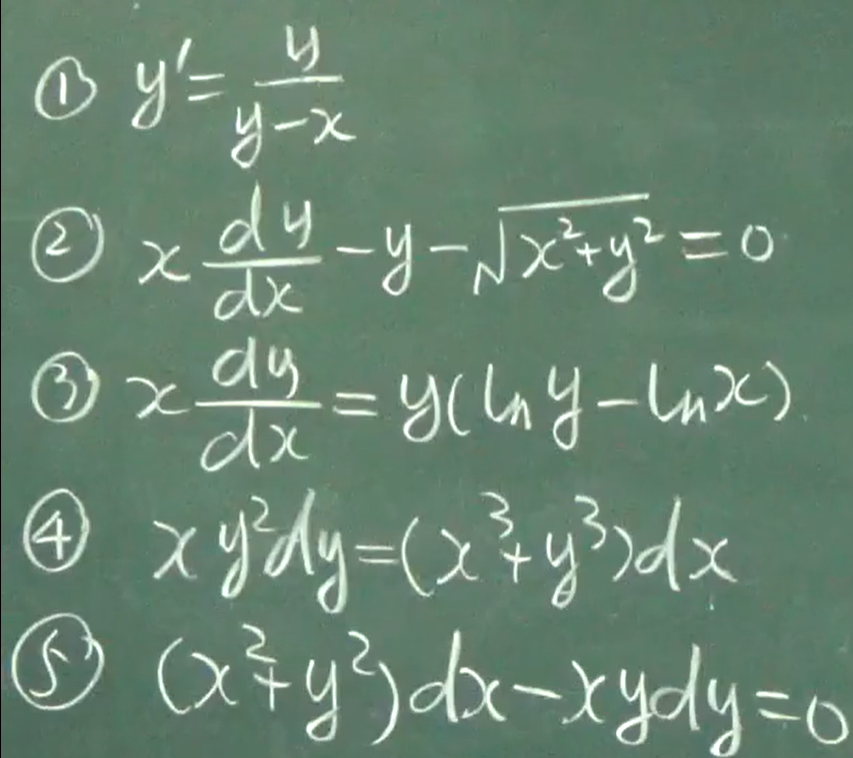 ① y' = y/(y-x)
② x dy/dx - y - √(x²+y²) = 0
③ x dy/dx = y(ln y - ln x)
④ xy²dy = (x³+y³)dx
⑤ (x²+y²)dx - xydy = 0